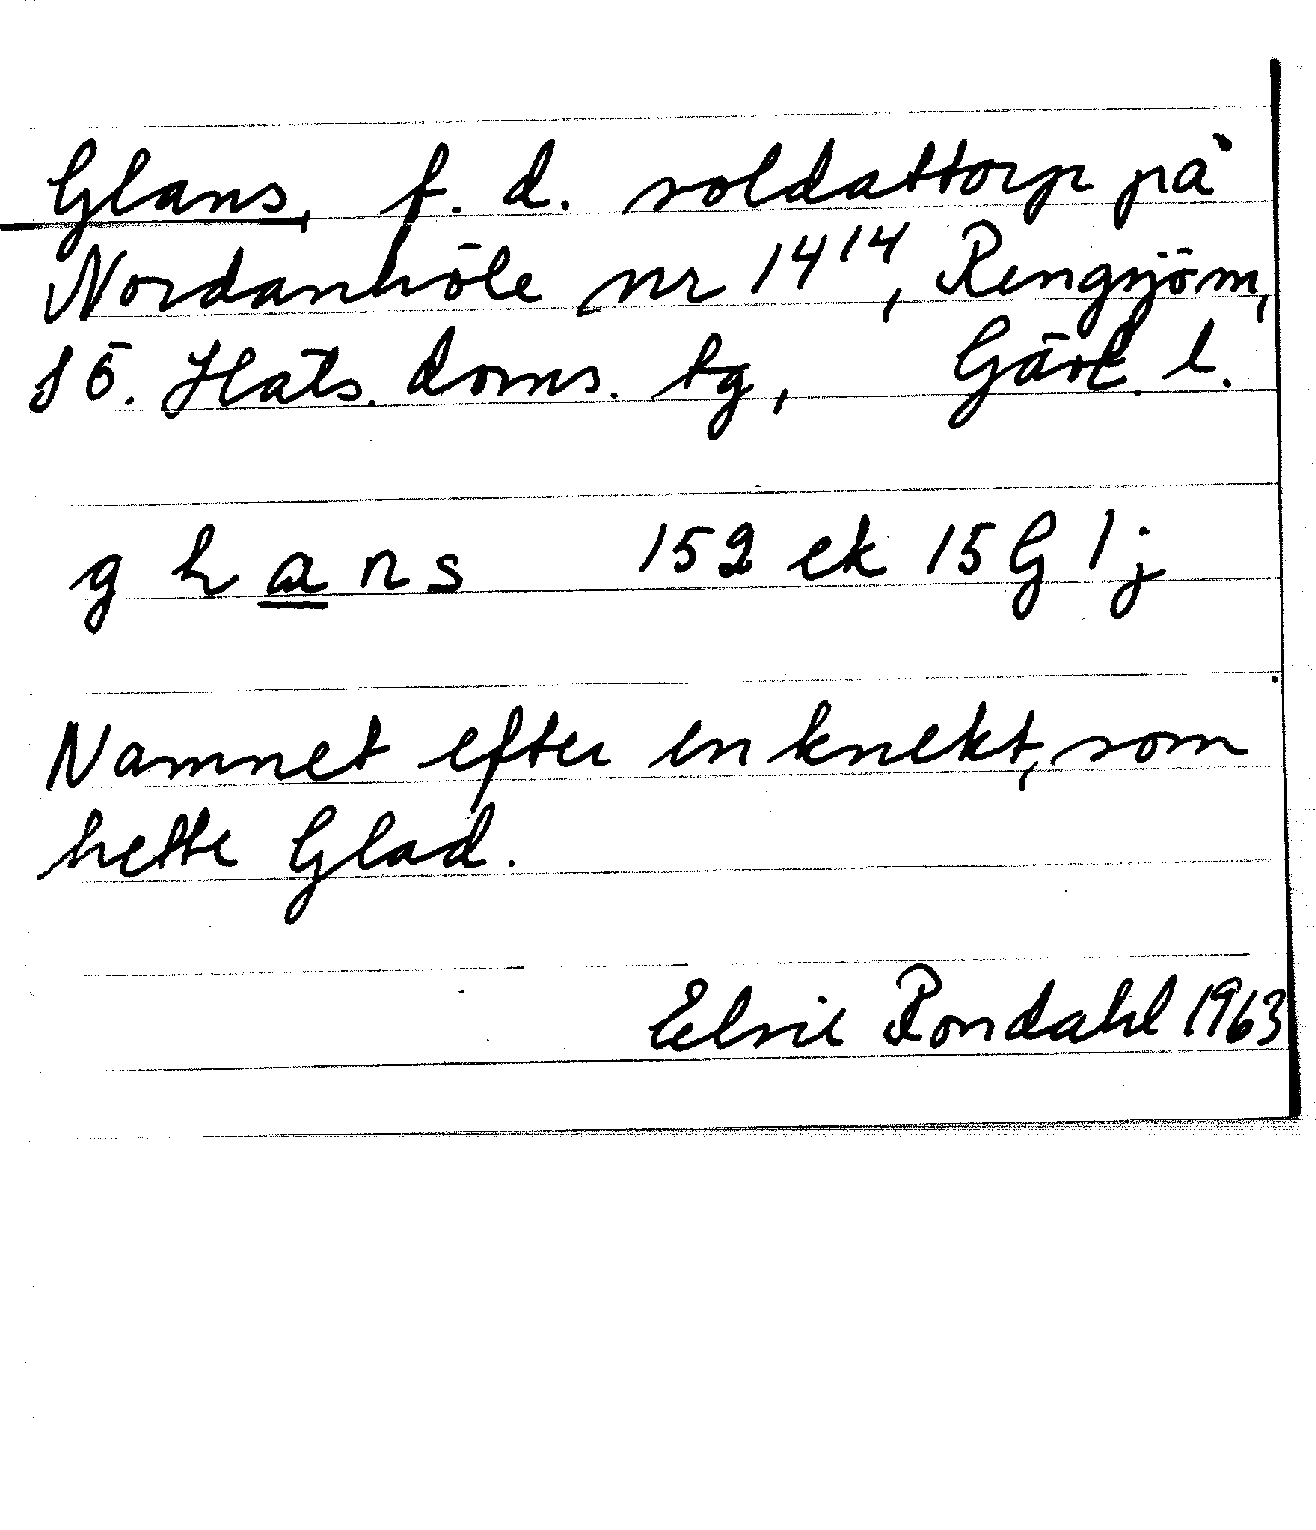 Glans, f. d. soldattorp på
Nordanhöle nr 14¹⁴, Rengsjö sn,
Sö. Häls. doms. tg, Gävl. l.
g l a n s 152 ek 15G 1j
Namnet efter en knekt, som
hette Glad.
Elsie Rondahl 1963